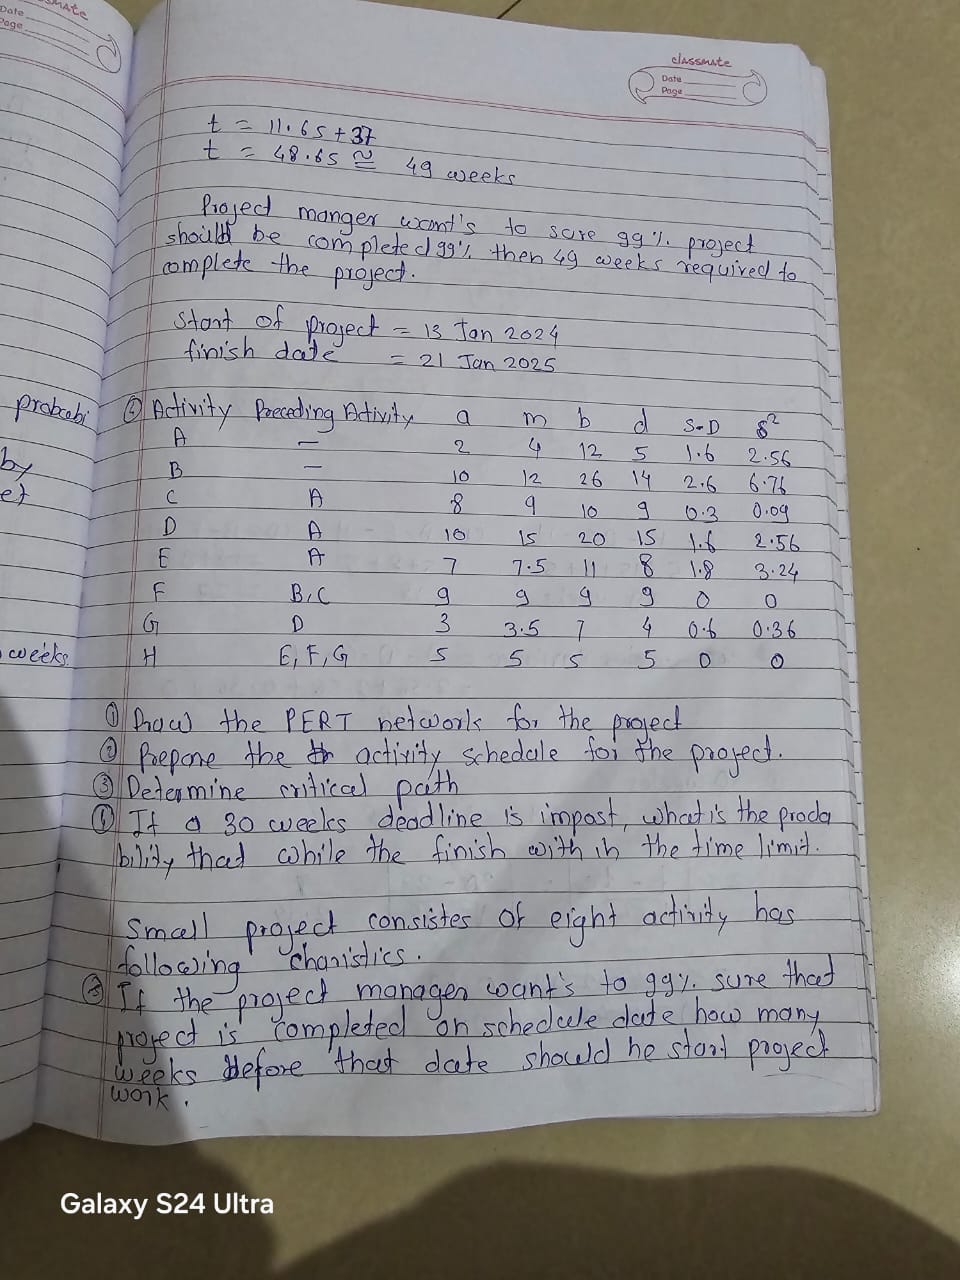 classmate
Date
Page
classmate
Date
Page
t = 11.65+37
t = 48.65 ≅ 49 weeks
Project manger want's to sure 99%. project
should be completed 99%, then 49 weeks required to
complete the project.
Start of project = 13 Jan 2024
finish date = 21 Jan 2025
probabi
② Activity Preceding Activity a m b d S-D δ²
A – 2 4 12 5 1.6 2.56
by
B – 10 12 26 14 2.6 6.76
et
C A 8 9 10 9 0.3 0.09
D A 10 15 20 15 1.6 2.56
E A 7 7.5 11 8 1.8 3.24
F B,C 9 9 9 9 0 0
G D 3 3.5 7 4 0.6 0.36
weeks
H E, F, G 5 5 5 5 0 0
① Draw the PERT network for the project
② Prepare the activity schedale for the project.
③ Determine critical path
④ If a 30 weeks deadline is impost, what is the proda
bility that while the finish with in the time limit.
Small project consistes of eight activity has
following charistics.
⑤ If the project manager want's to 99%. sure that
project is completed on schedule date how many
weeks before that date should he start project
work.
Galaxy S24 Ultra